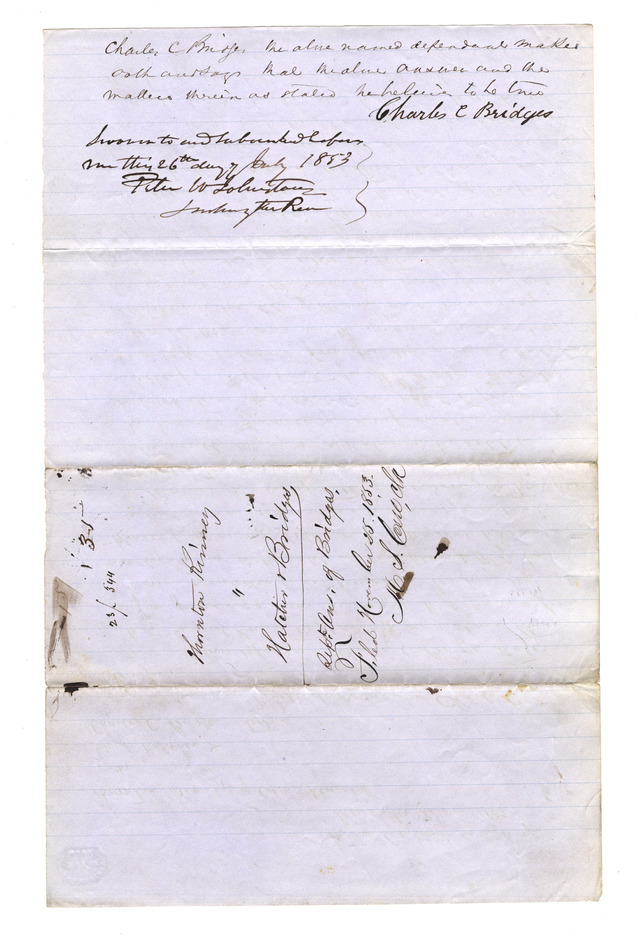 Charles C Bridges the above named defendant makes
oath and says that the above answer and the
matters therein as stated he believes to be true
Charles C Bridges
Sworn to and subscribed before
me this 26th day of July 1853
Peter W Johnstone
Justice of the Peace
135
23/344
Thornton Kinney
"
Hatcher & Bridges
Ans. of Bridges.
Filed November 25. 1853.
Clk